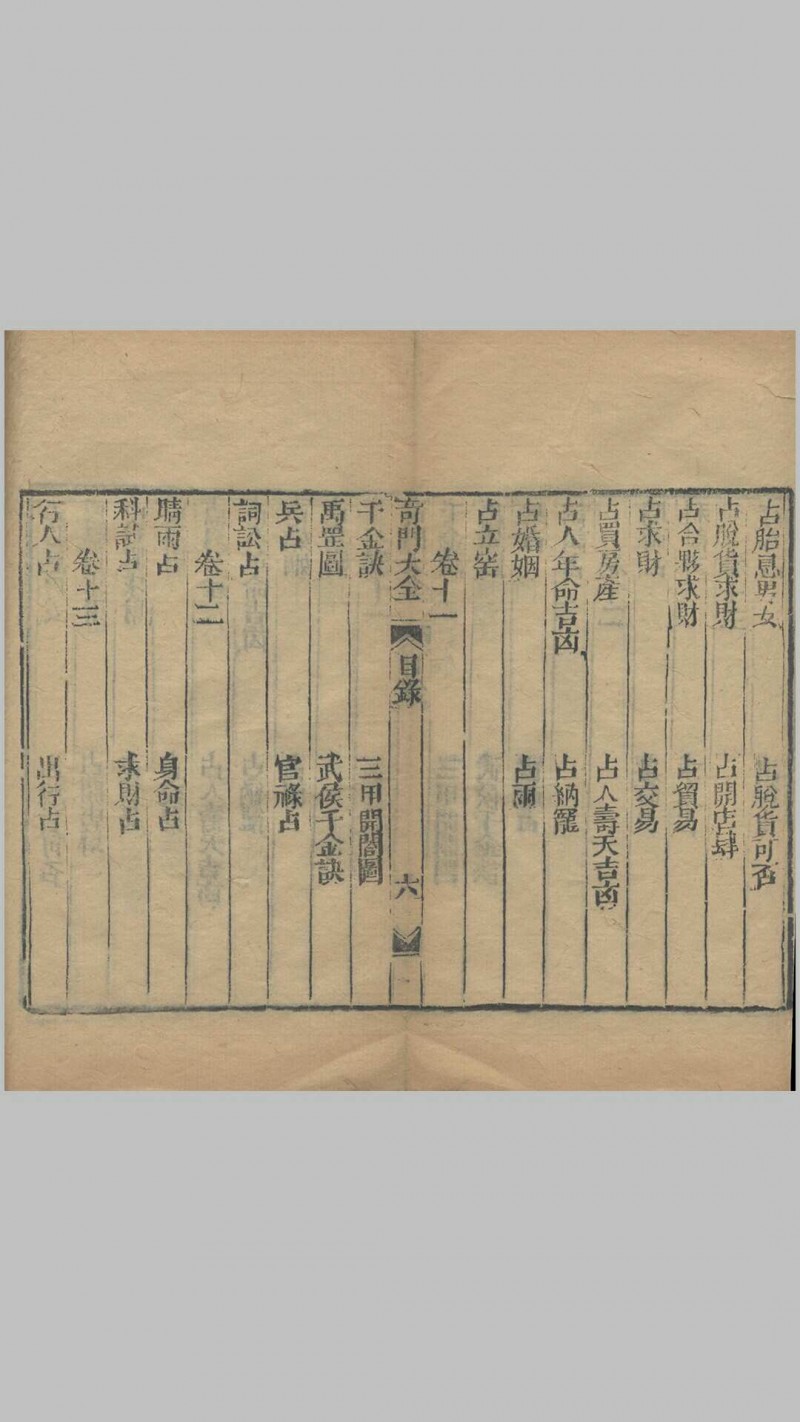 占胎息男女 占脫貨可否
占脫貨求財 占開店肆
占合夥求財 占貿易
占求財 占交易
占買房產 占人壽夭吉凶
占人年命吉凶 占納寵
占婚姻 占雨
占立窑
卷十一
奇門大全 目錄 六
千金訣 三甲開闔圖
禹罡圖 武侯千金訣
兵占 官祿占
詞訟占
卷十二
晴雨占 身命占
科試占 求財占
卷十三
行人占 出行占